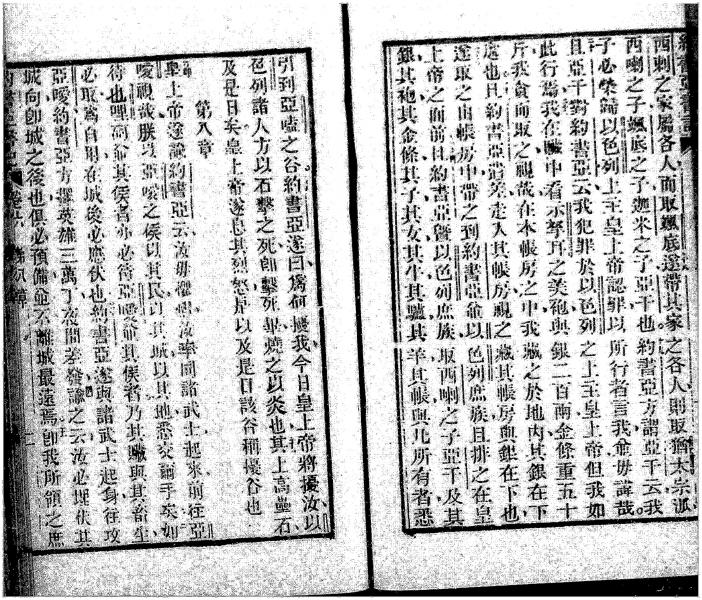 西剌之家屬各人而取颯底遂帶其家之各人則取猶太宗派
西喇之子颯底之子迦米之子亞干也約書亞方謂亞干云我
子必榮歸以色列上主皇上帝認罪以所行者言我爺毋諱哉
且亞干對約書亞云我犯罪於以色列之上主皇上帝但我如
此行焉我在贓中看示拏耳之美袍與銀二百兩金條重五十
斤我貪而取之視哉在本帳房之中我藏之於地內其銀在下
處也且約書亞差走人其帳房視之藏其帳房與銀在下也
遂取之由帳房中帶之到約書亞並以色列庶族且排之在皇
上帝之面前且約書亞暨以色列庶族取西喇之子亞干及其
銀其袍其金條其子其女其牛其驢其羊其帳與凡所有者悉
引到亞嗑之谷約書亞遂曰爲何擾我今日皇上帝將擾汝以
色列諸人方以石擊之死卽擊死畢燒之以炎也其上高壘石
及是日矣皇上帝遂息其烈怒是以及是日該谷稱擾谷也
第八章
皇上帝遂謂約書亞云汝毋懼率同諸武士起來前往亞
噯視哉朕以亞噯之侯以其民以其城以其地悉交汝手矣如
待也哩哥爺其侯者亦必待亞噯並其侯者乃其贓與其畜生
必取爲自用在城後必應伏也約書亞遂與諸武士起身往攻
亞噯約書亞方擇英雄三萬丁夜間差發諭之云汝必埋伏其
城向卽城之後也俱必預備並不離城最遠焉卽我所領之庶